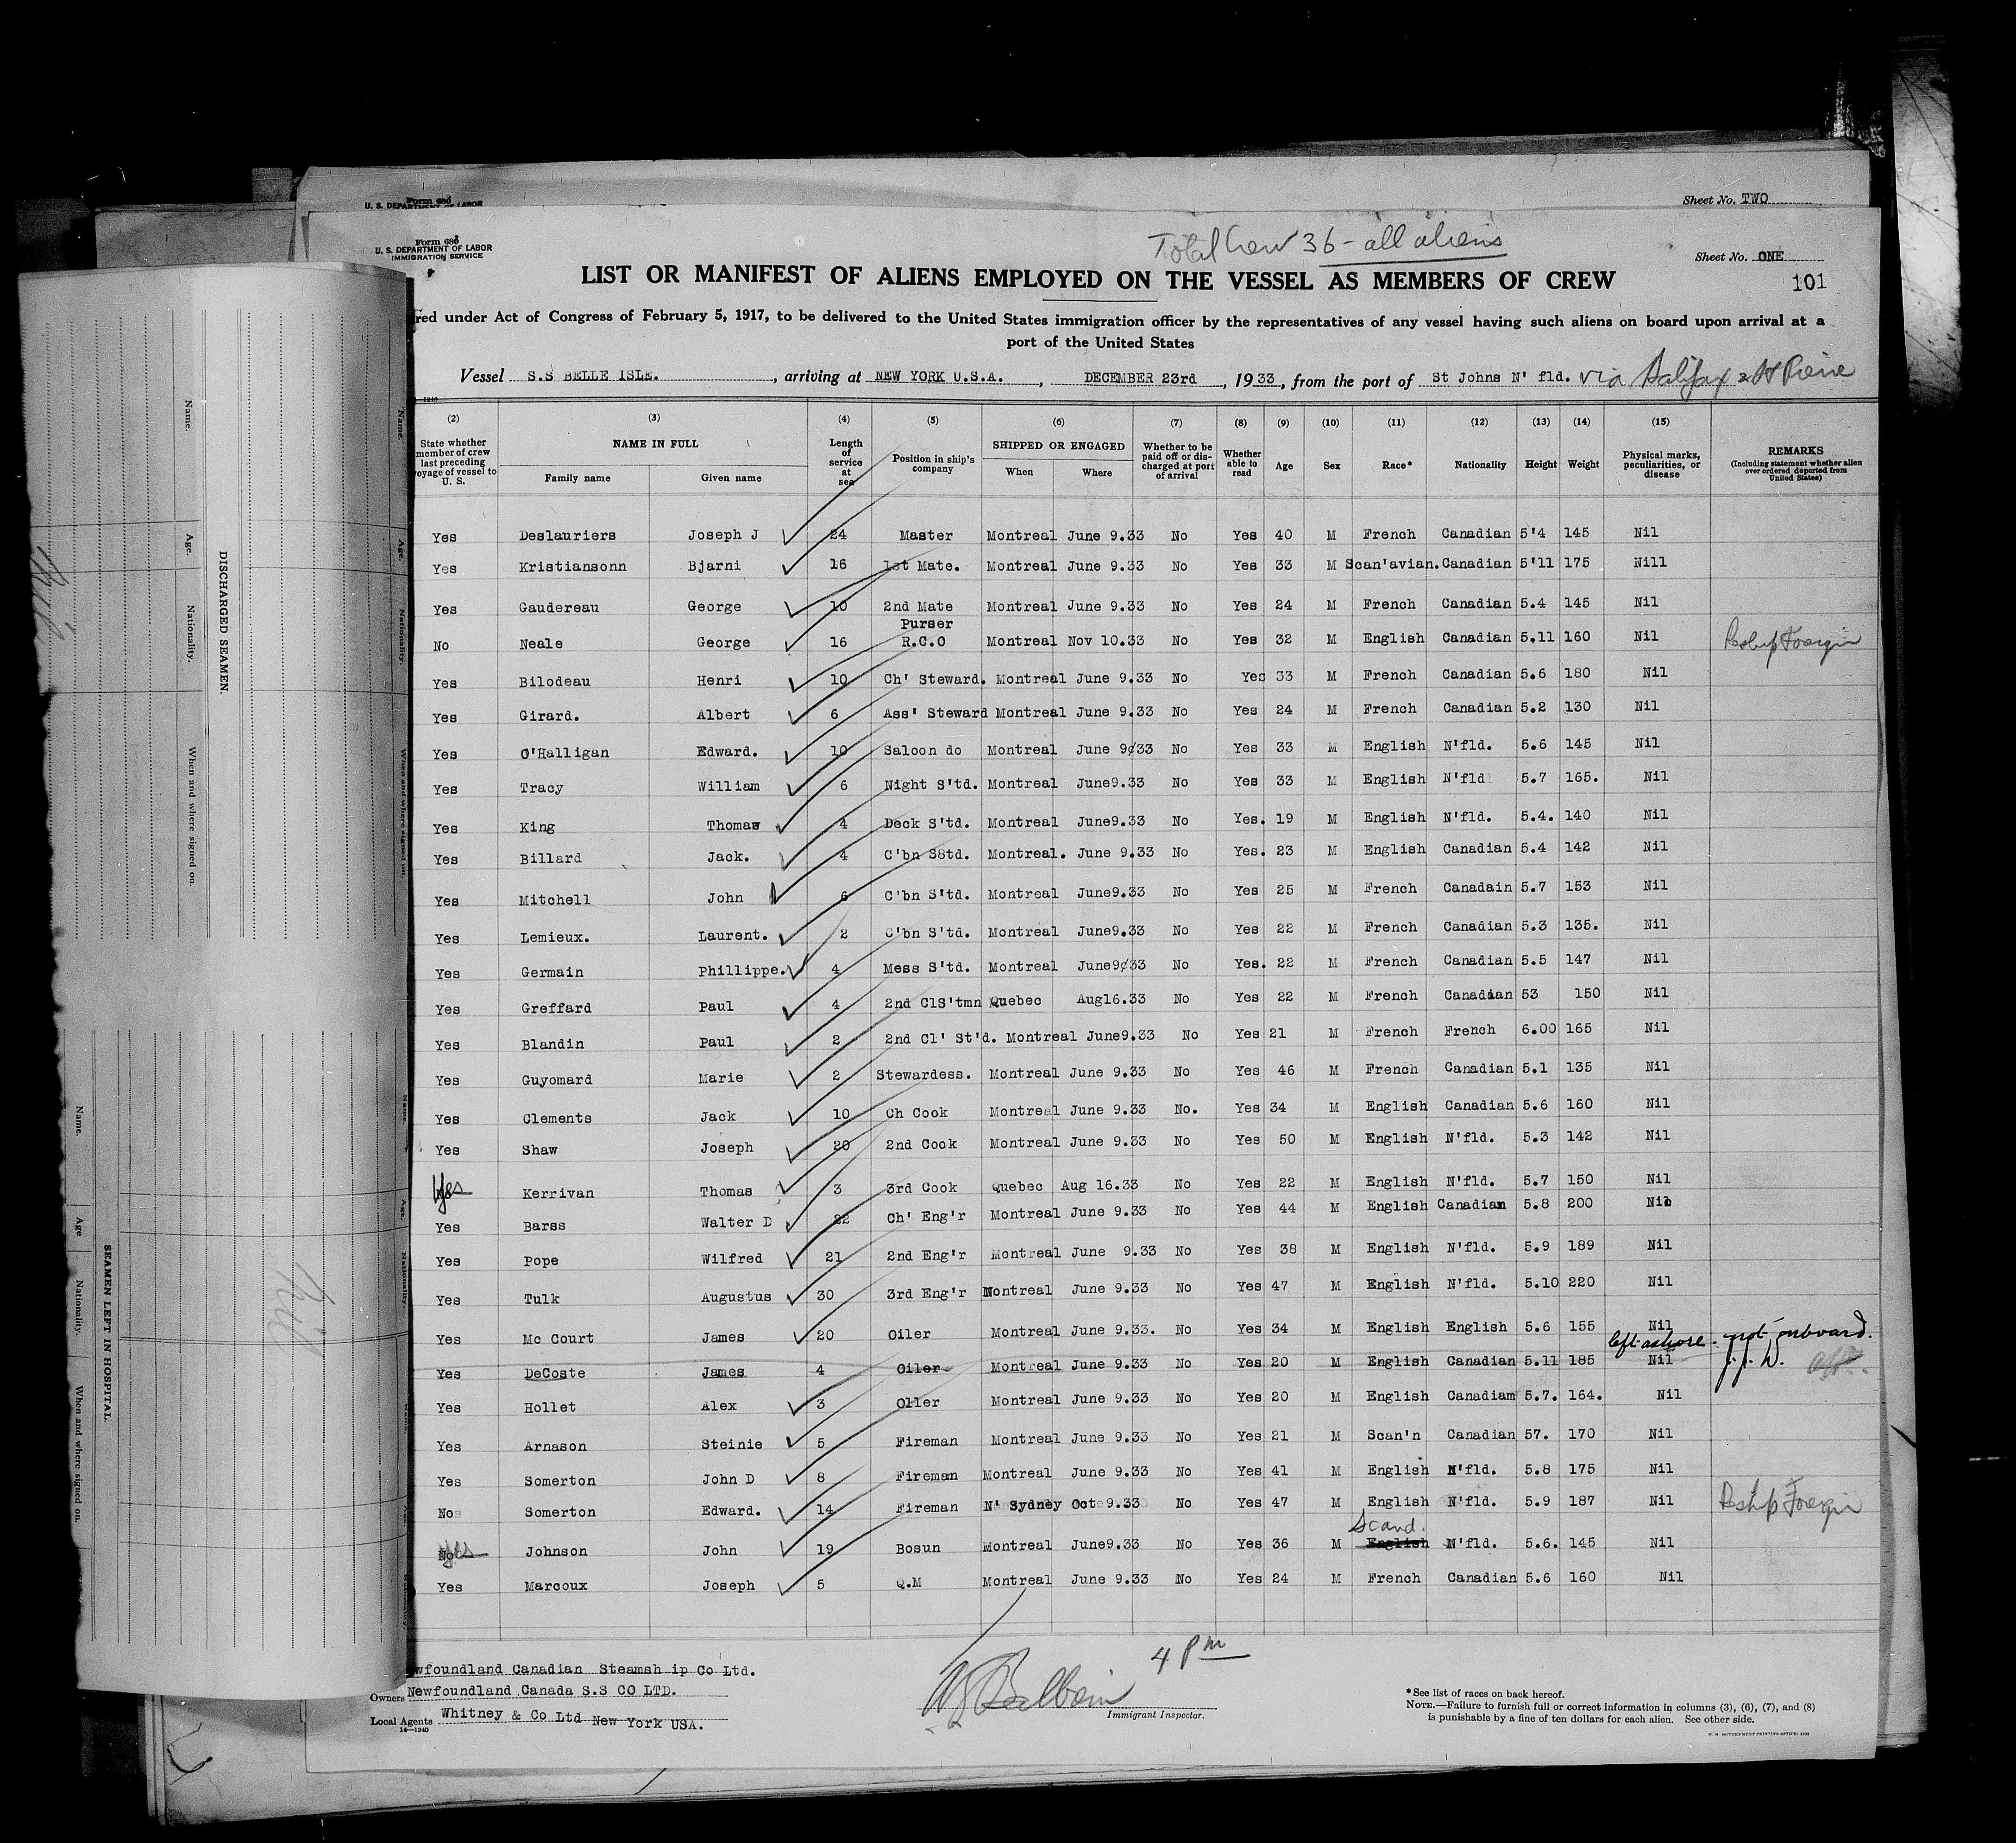 Form 686
U. S. DEPARTMENT OF LABOR
Sheet No. TWO
Form 680
U. S. DEPARTMENT OF LABOR
IMMIGRATION SERVICE
Total Crew 36 - all aliens
Sheet No. ONE
LIST OR MANIFEST OF ALIENS EMPLOYED ON THE VESSEL AS MEMBERS OF CREW
101
red under Act of Congress of February 5, 1917, to be delivered to the United States immigration officer by the representatives of any vessel having such aliens on board upon arrival at a
port of the United States
Vessel S.S BELLE ISLE. , arriving at NEW YORK U.S.A. , DECEMBER 23rd , 1933, from the port of St Johns N' fld. via Halifax & St Pierre
(2) (3) (4) (5) (6) (7) (8) (9) (10) (11) (12) (13) (14) (15)
State whether member of crew last preceding voyage of vessel to U. S. NAME IN FULL Family name Given name Length of service at sea Position in ship's company SHIPPED OR ENGAGED When Where Whether to be paid off or discharged at port of arrival Whether able to read Age Sex Race* Nationality Height Weight Physical marks, peculiarities, or disease REMARKS (Including statement whether alien ever ordered deported from United States)
Yes Deslauriers Joseph J 24 Master Montreal June 9.33 No Yes 40 M French Canadian 5'4 145 Nil
Yes Kristiansonn Bjarni 16 1st Mate. Montreal June 9.33 No Yes 33 M Scan'avian. Canadian 5'11 175 Nill
Yes Gaudereau George 10 2nd Mate Montreal June 9.33 No Yes 24 M French Canadian 5.4 145 Nil
No Neale George 16 Purser R.C.O Montreal Nov 10.33 No Yes 32 M English Canadian 5.11 160 Nil Reship Foreign
Yes Bilodeau Henri 10 Ch' Steward. Montreal June 9.33 No Yes 33 M French Canadian 5.6 180 Nil
Yes Girard. Albert 6 Ass' Steward Montreal June 9.33 No Yes 24 M French Canadian 5.2 130 Nil
Yes O'Halligan Edward. 10 Saloon do Montreal June 9¢33 No Yes 33 M English N'fld. 5.6 145 Nil
Yes Tracy William 6 Night S'td. Montreal June9.33 No Yes 33 M English N'fld 5.7 165. Nil
Yes King Thomas 4 Deck S'td. Montreal June9.33 No Yes. 19 M English N'fld. 5.4. 140 Nil
Yes Billard Jack. 4 C'bn S8td. Montreal. June 9.33 No Yes. 23 M English Canadian 5.4 142 Nil
Yes Mitchell John 6 C'bn S'td. Montreal June9.33 No Yes 25 M French Canadain 5.7 153 Nil
Yes Lemieux. Laurent. 2 C'bn S'td. Montreal June9.33 No Yes 22 M French Canadian 5.3 135. Nil
Yes Germain Phillippe. 4 Mess S'td. Montreal June9¢33 No Yes. 22 M French Canadian 5.5 147 Nil
Yes Greffard Paul 4 2nd ClS'tmn Quebec Aug16.33 No Yes 22 M French Canadian 53 150 Nil
Yes Blandin Paul 2 2nd Cl' St'd. Montreal June9.33 No Yes 21 M French French 6.00 165 Nil
Yes Guyomard Marie 2 Stewardess. Montreal June 9.33 No Yes 46 M French Canadian 5.1 135 Nil
Yes Clements Jack 10 Ch Cook Montreal June 9.33 No. Yes 34 M English Canadian 5.6 160 Nil
Yes Shaw Joseph 20 2nd Cook Montreal June 9.33 No Yes 50 M English N'fld. 5.3 142 Nil
Yes Kerrivan Thomas 3 3rd Cook Quebec Aug 16.33 No Yes 22 M English N'fld. 5.7 150 Nil
Yes Barss Walter D 22 Ch' Eng'r Montreal June 9.33 No Yes 44 M English Canadian 5.8 200 Nil
Yes Pope Wilfred 21 2nd Eng'r Montreal June 9.33 No Yes 38 M English N'fld. 5.9 189 Nil
Yes Tulk Augustus 30 3rd Eng'r Montreal June 9.33 No Yes 47 M English N'fld. 5.10 220 Nil
Yes Mc Court James 20 Oiler Montreal June 9.33. No Yes 34 M English English 5.6 155 Nil
left ashore - not onboard.
Yes DeCoste James 4 Oiler Montreal June 9.33 No Yes 20 M English Canadian 5.11 185 Nil J.J.W.
Yes Hollet Alex 3 Oiler Montreal June 9.33 No Yes 20 M English Canadiam 5.7. 164. Nil
Yes Arnason Steinie 5 Fireman Montreal June 9.33 No Yes 21 M Scan'n Canadian 57. 170 Nil
Yes Somerton John D 8 Fireman Montreal June 9.33 No Yes 41 M English N'fld. 5.8 175 Nil
No Somerton Edward. 14 Fireman N' Sydney Oct 9.33 No Yes 47 M English N'fld. 5.9 187 Nil Reship Foreign
Scand.
No Yes Johnson John 19 Bosun Montreal June9.33 No Yes 36 M English N'fld. 5.6. 145 Nil
Yes Marcoux Joseph 5 Q.M Montreal June 9.33 No Yes 24 M French Canadian 5.6 160 Nil
4 Pm
wfoundland Canadian Steamsh ip Co Ltd.
Owners Newfoundland Canada S.S CO LTD.
Local Agents Whitney & Co Ltd New York USA.
14—1240
Immigrant Inspector.
*See list of races on back hereof.
NOTE.—Failure to furnish full or correct information in columns (3), (6), (7), and (8)
is punishable by a fine of ten dollars for each alien. See other side.
DISCHARGED SEAMEN.
Name.
Age.
Nationality.
When and where signed on.
SEAMEN LEFT IN HOSPITAL.
Name.
Age
Nationality.
When and where signed on.
Nil